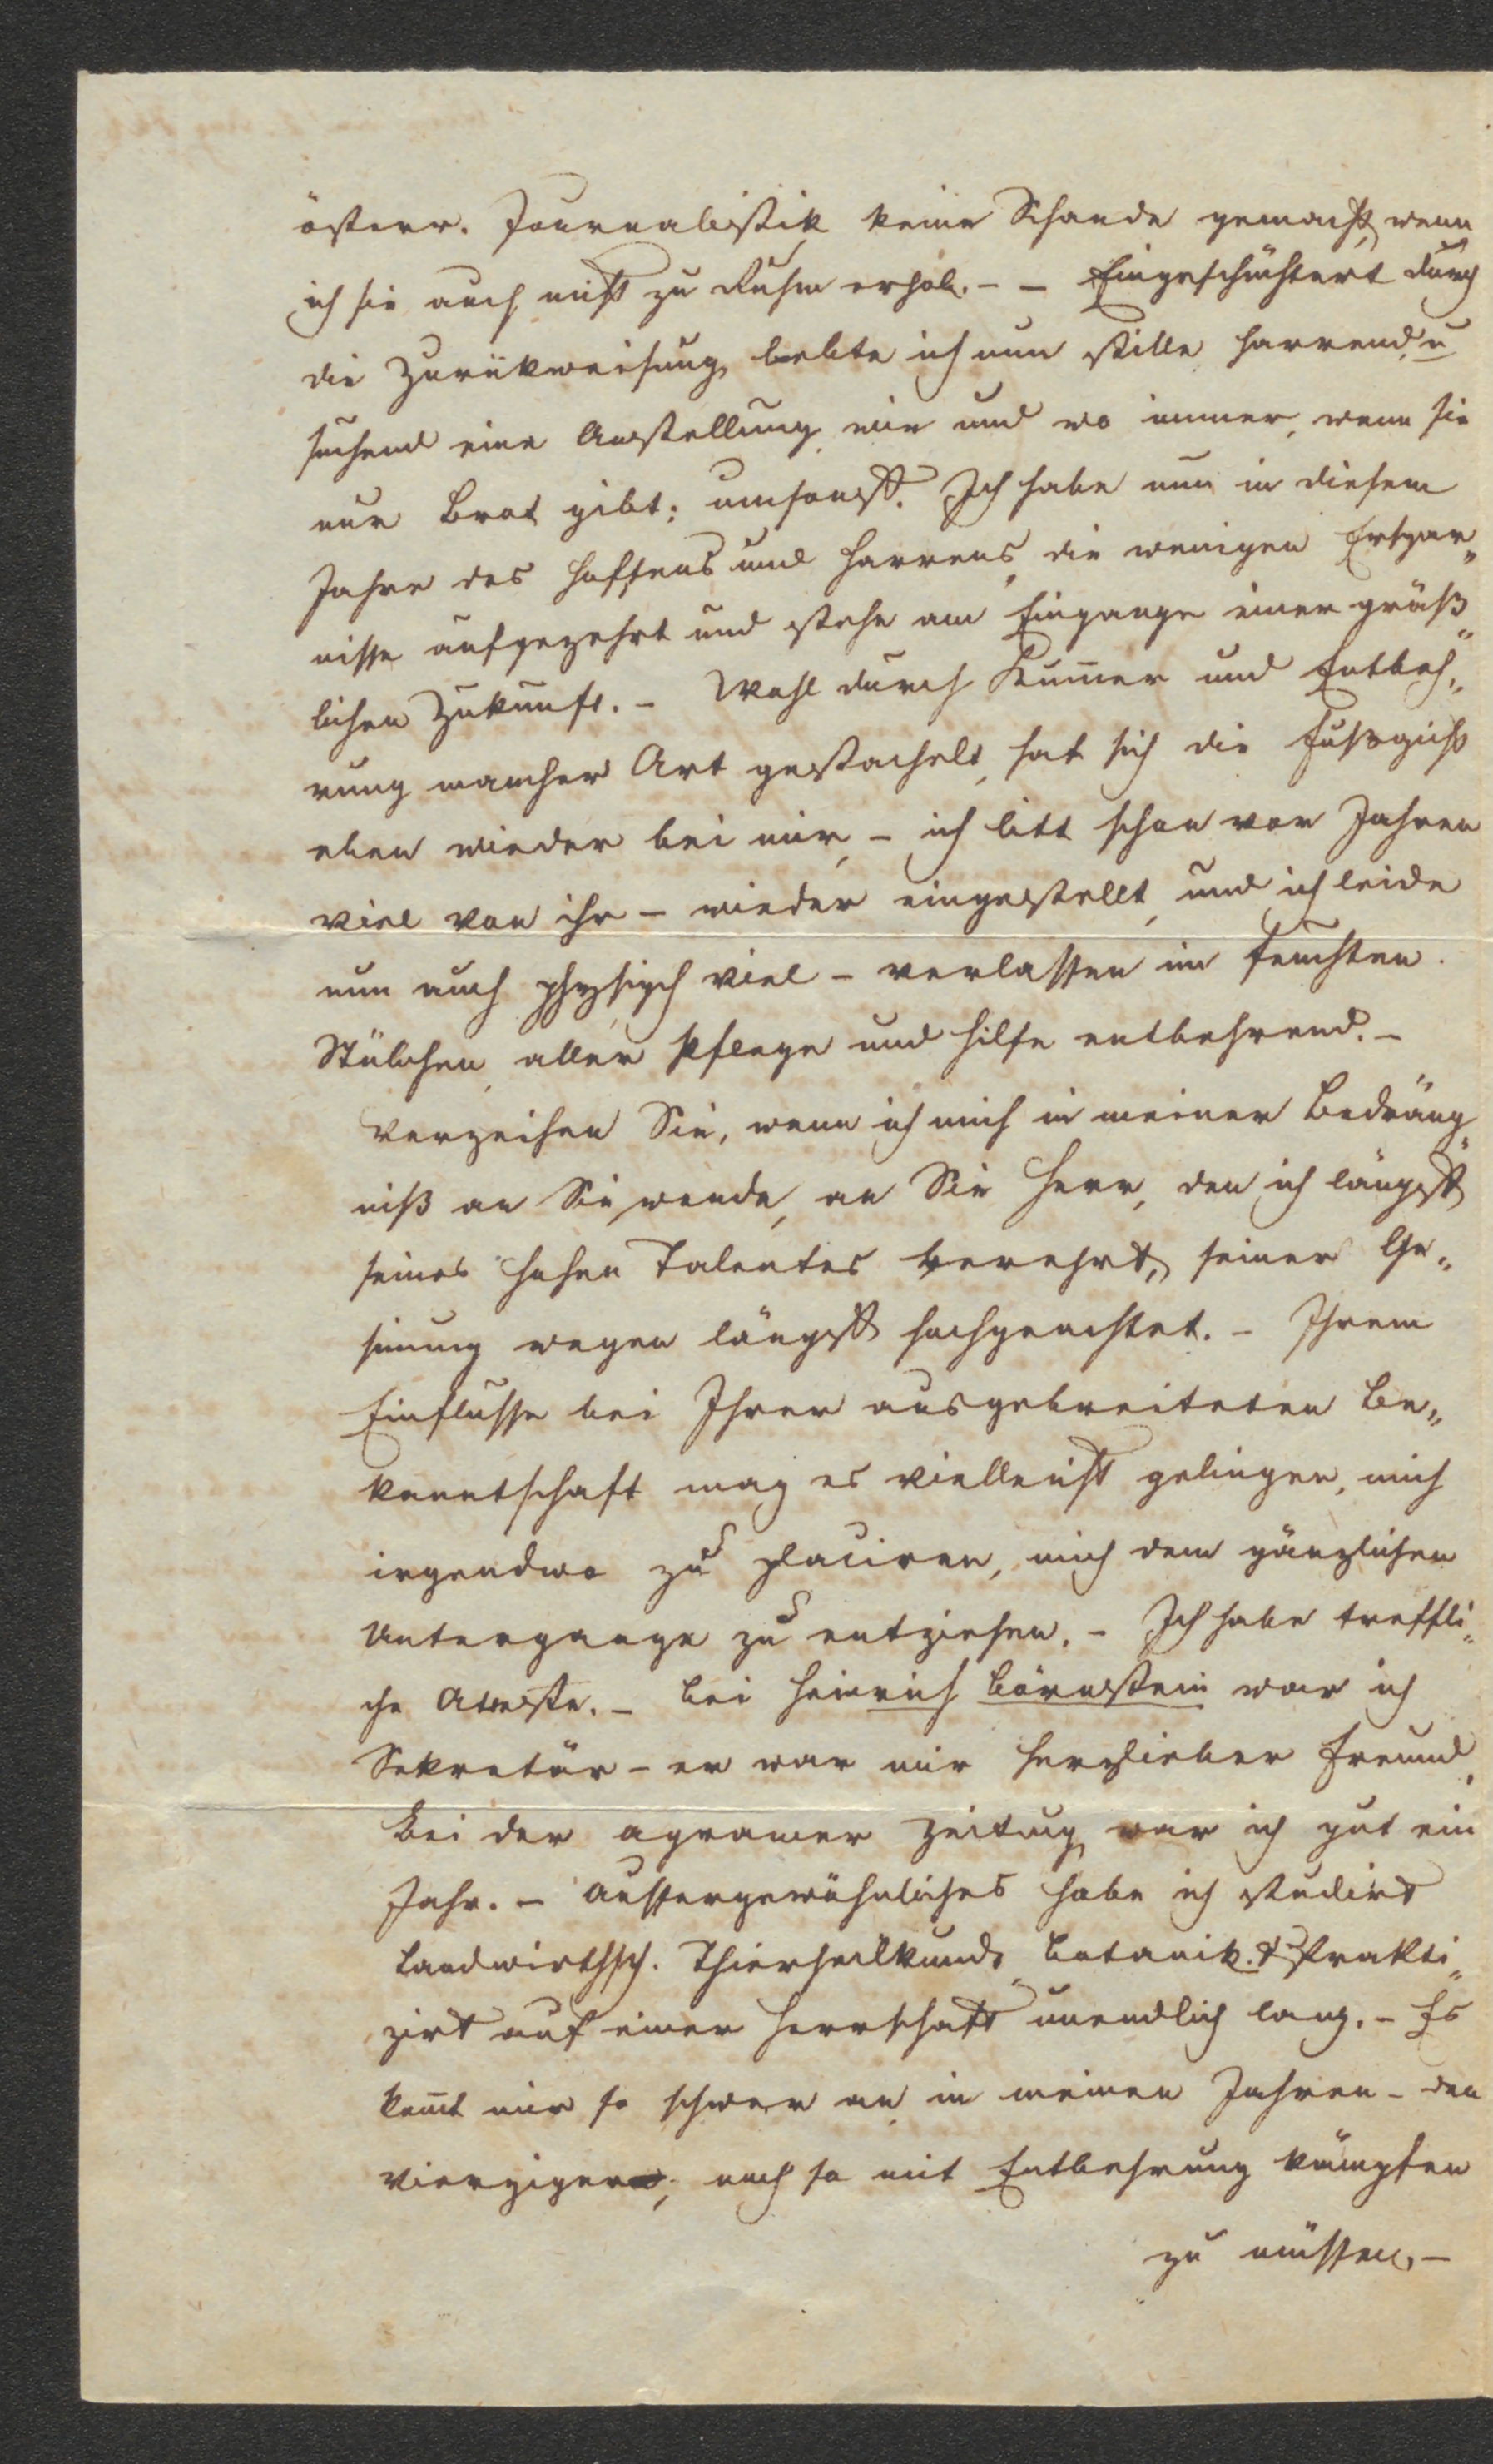 österr. Journalistik keine Schande gemacht, wenn
ich sie auch nicht zu Ruhm erhob. – – Eingeschüchtert durch
die Zurükweisung lebte ich nun stille harrend, u
suchend eine Anstellung wie und wo immer, wenn sie
nur Brot gibt; umsonst. Ich habe nun in diesem
Jahre des Hoffens und Harrens die wenigen Erspar„
nisse aufgezehrt und stehe am Eingange einer gräß„
lichen Zukunft. – Wohl durch Kum̄er und Entbeh„
rung mancher Art gestachelt, hat sich die Fußgicht
eben wieder bei mir, – ich litt schon vor Jahren
viel von ihr – wieder eingestellt, und ich leide
nun auch physisch viel – verlassen im feuchten
Stübchen, aller Pflege und Hilfe entbehrend. –
Verzeihen Sie, wenn ich mich in meiner Bedräng„
niß an Sie wende, an Sie Herr, den ich längst
seines hohen Talentes verehrt, seiner Ge„
sinung wegen längst hochgeachtet. – Ihrem
Einflusse bei Ihrer ausgebreiteten Be„
kanntschaft mag es vielleicht gelingen, mich
irgendwo zu placiren, mich dem gänzlichen
Untergange zu entziehen. – Ich habe treffli„
che Atteste. – Bei Heinrich Börnstein war ich
Sekretär – er war mir herzlieber Freund.
Bei der agramer Zeitung war ich gut ein
Jahr. – Aussergewöhnliches habe ich studirt
Landwirthsch. Thierheilkunde, Botanik. & Prakti„
zirt auf einer Herrschaft unendlich lang. – Es
kom̄t mir so schwer an, in meinen Jahren – den
Vierzigern, noch so mit Entbehrung kämpfen
zu müssen. –